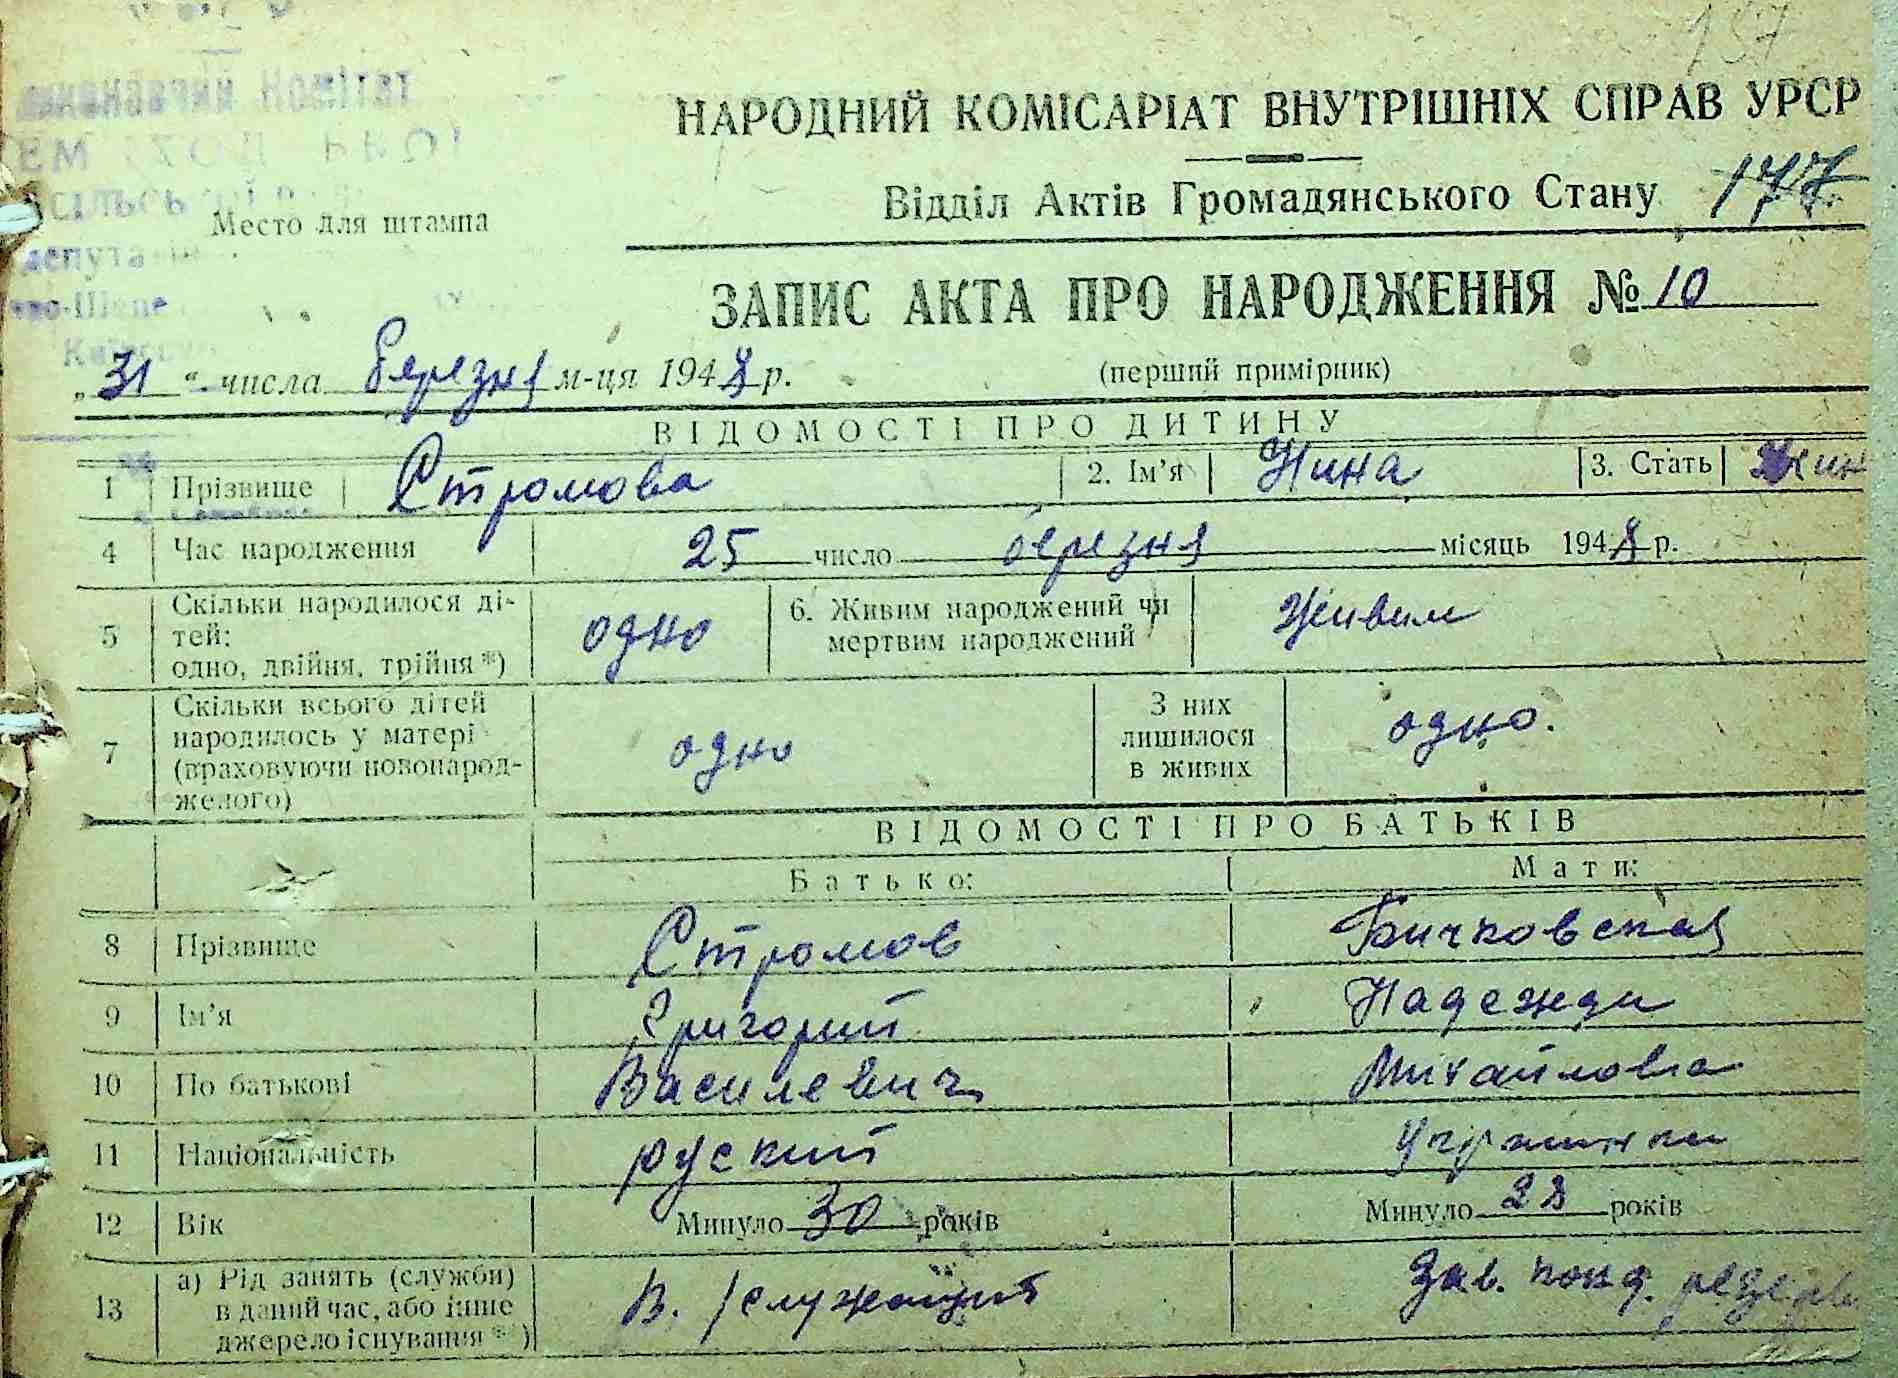 157
Комітет
депута
Київськ
Место для штампа
НАРОДНИЙ КОМІСАРІАТ ВНУТРІШНІХ СПРАВ УРСР
Відділ Актів Громадянського Стану 177
ЗАПИС АКТА ПРО НАРОДЖЕННЯ № 10
„31“ числа березня м-ця 1948 р. (перший примірник)
ВІДОМОСТІ ПРО ДИТИНУ
1 Прізвище Стромова 2. Ім’я Нина 3. Стать Жин
4 Час народження 25 число березня місяць 1948 р.
5 Скільки народилося ді-
тей:
одно, двійня, трійня *) одно 6. Живим народжений чи
мертвим народжений Живим
7 Скільки всього дітей
народилось у матері
(враховуючи новонарод-
желого) одно З них
лишилося
в живих одно.
ВІДОМОСТІ ПРО БАТЬКІВ
Батько: Мати:
8 Прізвище Стромов Бичковская
9 Ім’я Григорий Надежди
10 По батькові Василевич Михайловна
11 Національність руский Украинка
12 Вік Минуло 30 років Минуло 28 років
13 а) Рід занять (служби)
в даний час, або інше
джерело існування *) В. /служащий Зав.